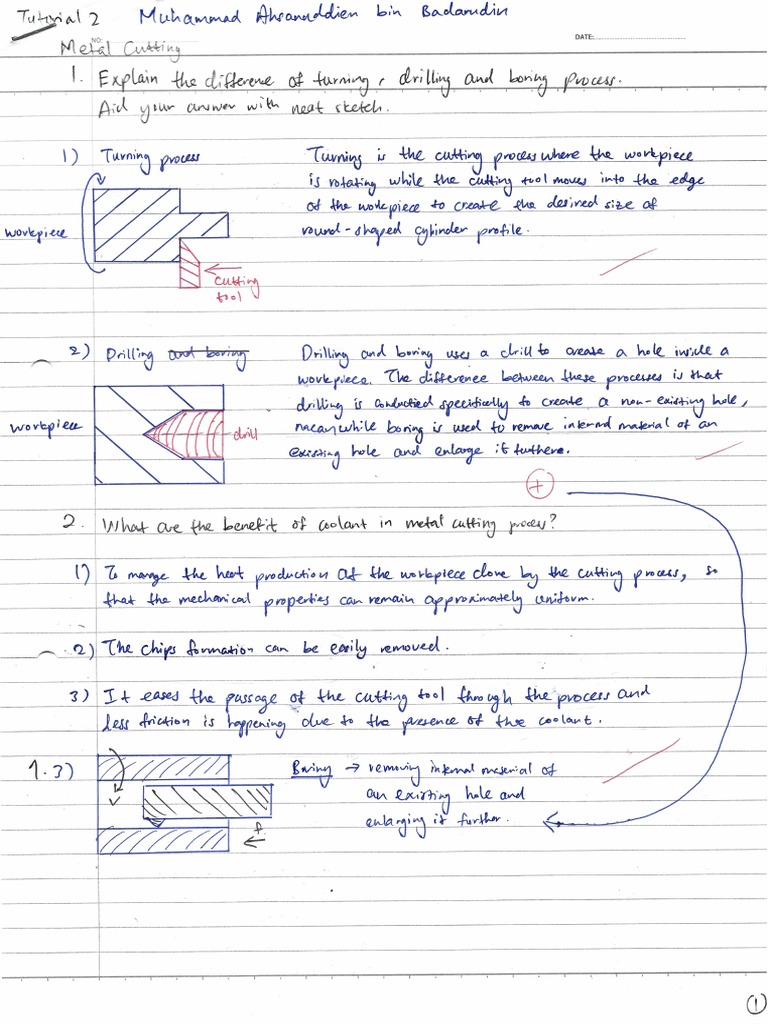 Tutorial 2 Muhammad Ahsanuddien bin Badarudin
NO:
DATE:
Metal Cutting
1. Explain the difference of turning, drilling and boring process.
Aid your answer with neat sketch.
1) Turning process
Turning is the cutting process where the workpiece
is rotating while the cutting tool moves into the edge
of the workpiece to create the desired size of
round-shaped cylinder profile.
workpiece
cutting
tool
2) Drilling and boring
Drilling and boring uses a drill to create a hole inside a
workpiece. The difference between these processes is that
drilling is conducted specifically to create a non-existing hole,
meanwhile boring is used to remove internal material of an
existing hole and enlarge it further.
workpiece
drill
+
2. What are the benefit of coolant in metal cutting process?
1) To mange the heat production at the workpiece done by the cutting process, so
that the mechanical properties can remain approximately uniform.
2) The chips formation can be easily removed.
3) It eases the passage of the cutting tool through the process and
less friction is happening due to the presence of the coolant.
1. 3)
Boring → removing internal material of
an existing hole and
enlarging it further.
v
f
1